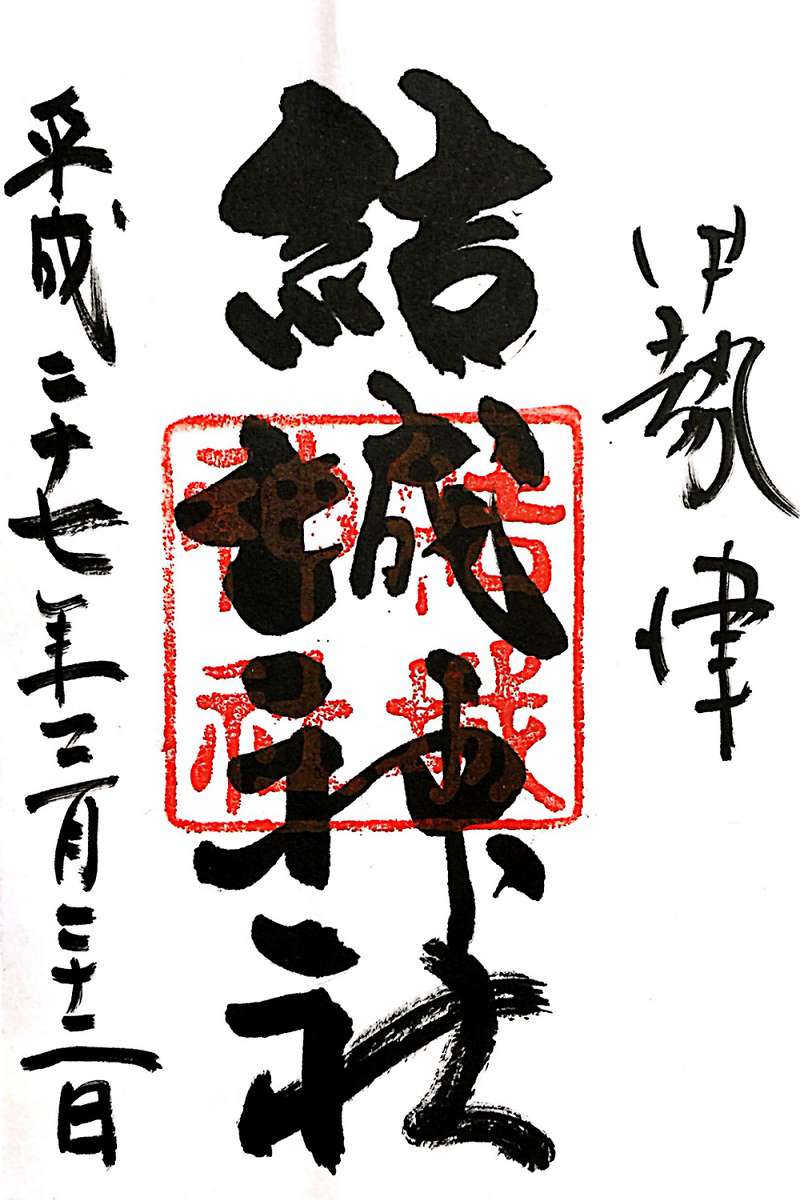 伊勢 津
結城神社
結城神社
平成二十七年三月二十二日